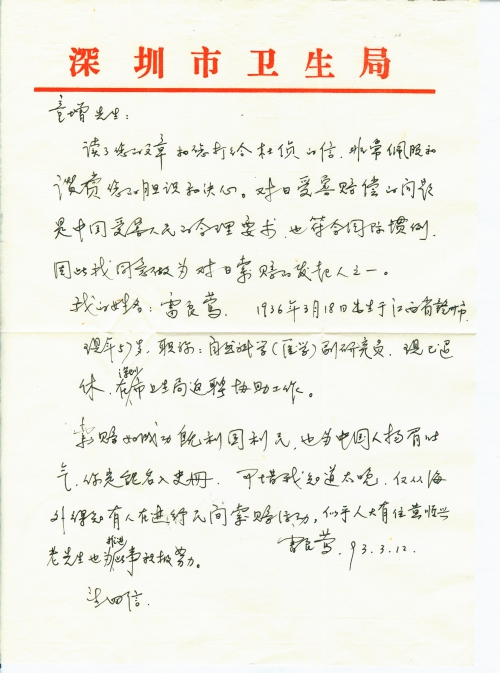 深圳市卫生局
童增先生：
读了您的文章和您打给杜侦的信，非常佩服和
赞赏您的胆识和决心。对日受害赔偿的问题
是中国受害人民的合理要求，也符合国际惯例，
因此我同意做为对日索赔的发起人之一。
我的姓名：雷良莺 1936年3月18日出生于江西省赣州市，
现年57岁，职称：自然科学（医学）副研究员，现已退
休，在深圳市卫生局返聘协助工作。
索赔如成功既利国利民，也为中国人扬眉吐
气，你定能名入史册。可惜我知道太晚，仅从海
外得知有人在进行民间索赔活动，似乎人大有位黄恒兴
老先生也为推进此事积极努力。
雷良莺，93.3.12.
请回信.